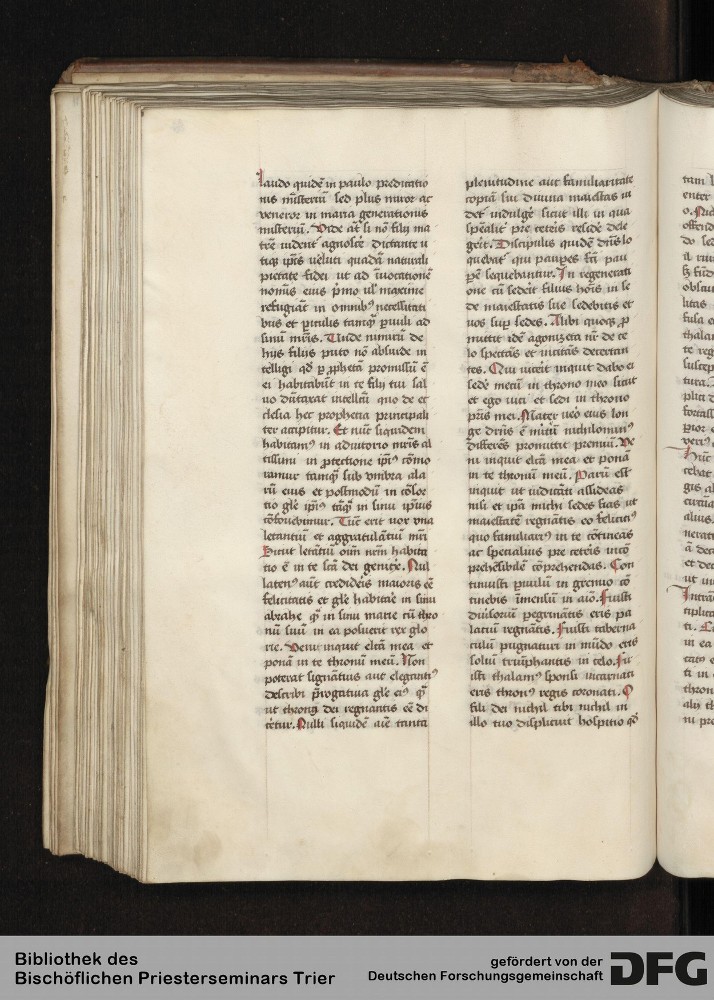 Laudo quidē in paulo predicatio
nis mīsteriū sed plus miror ac
veneror in maria generationis
misteriū. Vide at̄ si nō filij ma
trē videnť agnoscē dictante u
tiqꝫ ip̄is veluti quadā naturali
pietate fidei ut ad īuocationē
nomīs eius p̄mo ul̕ maxime
refugiāt in omnibꝰ necessitati
bus et ꝑiculis tamqꝫ ꝑuuli ad
sinū mr̄is. Unde nimirū de
hijs filijs puto nō absurde in
telligi qd̕ ꝑ ꝓphetā promissū ē
ei habitabūt in te filij tui sal
uo dūtaxat intellcū quo de ec
clesia hec prophecia principali
ter accipitur. Et nūc siquidem
habitamꝰ in adiutorio mr̄is al
tissimi in ꝓtectione ip̄iꝰ cōmo
ramur tamqꝫ sub vmbra ala
rū eius et postmodū in cōsor
tio gl̄e ip̄iꝰ tāqꝫ in sinu ip̄ius
cōfouebimur. Tūc erit vox vna
letantiū et aggratulātiū mr̄i
Sicut letātiū oīm nr̄m habita
tio ē in te sc̄ā dei genitꝛix. Nul
latenꝰ aūt credideīs maioris eē
felicitatis et gl̄e habitaē in sinu
abrahe qꝫ in sinu marie cū thro
nū suū in ea posuerit rex glo
rie. Veni inquit elc̄ā mea et
ponā in te thronū meū. Non
poterat signātius aut elegantiꝰ
describi p̄rogatiua gl̄e eiꝰ qꝫ
ut thronꝰ dei regnantis eē di
cētur. Nulli siquidē aīe tanta
plenitudine aut familiaritate
copiā sui diuina maiestas in
det̕ indulgē sicut illi in qua
sp̄ealit̕ pre ceteis residē dele
geīt. Discipulis quidē dn̄s lo
quebat̕ qui paupes sc̄ā pau
ꝑē sequebantur. In regenerati
one cū sedeīt filius hoīs in se
de maiestatis sue sedebitis et
vos suꝑ sedes. Alibi quoqꝫ ꝓ
mittit idē agonizeta nr̄ de ce
lo spectās et incitās decertan
tes. Qui viceīt inquit dabo ei
sedē mecū in throno meo sicut
et ego vici et sedi in throno
pr̄is mei. Mater v̕o eius lon
ge dn̄is ē mītū nichilominꝰ
differēs promittit premiū. Ve
ni inquit elc̄ā mea et ponā
in te thronū meū. Parū est
inquit ut iudicāti assideas
nisi et ip̄ā michi sedes fias ut
maiestatē regnātis eo felicitꝰ
quo familiarꝰ in te cōtineās
ac specialius pre ceteis incō
prehēsibilē cōprehendas. Con
tinuisti ꝑuulū in gremio cō
tinebis īmensū in aīo. Fuisti
diuisoriū pegrinātis eris pa
latiū regnātis. Fuisti taberna
culū pugnaturi in mūdo eris
soliū triūphantis in celo. Fu
isti thalamꝰ sponsi incarnati
eris thronꝰ regis coronati. O
fili dei nichil tibi nichil in
illo tuo displicuit hospitio qd̕
Bibliothek des
Bischöflichen Priesterseminars Trier
gefördert von der
Deutschen Forschungsgemeinschaft
DFG